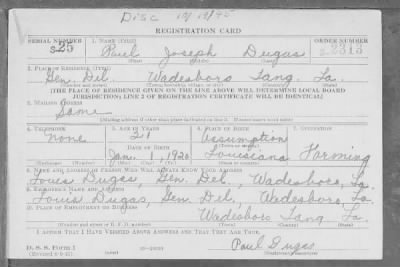 Disc 10/19/45
REGISTRATION CARD
SERIAL NUMBER
1. NAME (Print)
ORDER NUMBER
S 25
Paul Joseph Dugas
2313
(First) (Middle) (Last)
2. PLACE OF RESIDENCE (Print)
Gen. Del. Wadesboro Tang. La.
(Number and street) (Town, township, village, or city) (County) (State)
[THE PLACE OF RESIDENCE GIVEN ON THE LINE ABOVE WILL DETERMINE LOCAL BOARD
JURISDICTION; LINE 2 OF REGISTRATION CERTIFICATE WILL BE IDENTICAL]
3. MAILING ADDRESS
Same
[Mailing address if other than place indicated on line 2. If same insert word same]
4. TELEPHONE
5. AGE IN YEARS
6. PLACE OF BIRTH
7. OCCUPATION
none
21
Assumption
DATE OF BIRTH
(Town or county)
Jan. 1920
Louisiana
Farming
(Exchange) (Number) (Mo.) (Day) (Yr.) (State or country)
8. NAME AND ADDRESS OF PERSON WHO WILL ALWAYS KNOW YOUR ADDRESS
Louis Dugas, Gen. Del., Wadesboro, La.
9. EMPLOYER'S NAME AND ADDRESS
Louis Dugas, Gen. Del., Wadesboro, La.
10. PLACE OF EMPLOYMENT OR BUSINESS
Wadesboro Tang. La.
(Number and street or R. F. D. number) (Town) (County) (State)
I AFFIRM THAT I HAVE VERIFIED ABOVE ANSWERS AND THAT THEY ARE TRUE.
D. S. S. Form 1
Paul Dugas